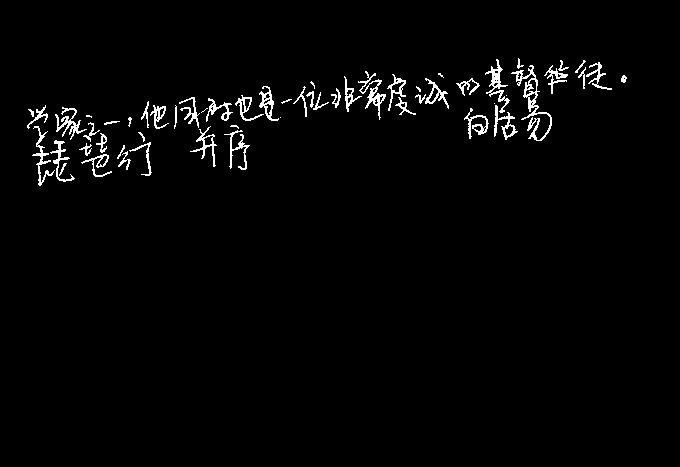 学家之一，他同时也是一位非常虔诚的基督徒。
琵琶行 并序 白居易